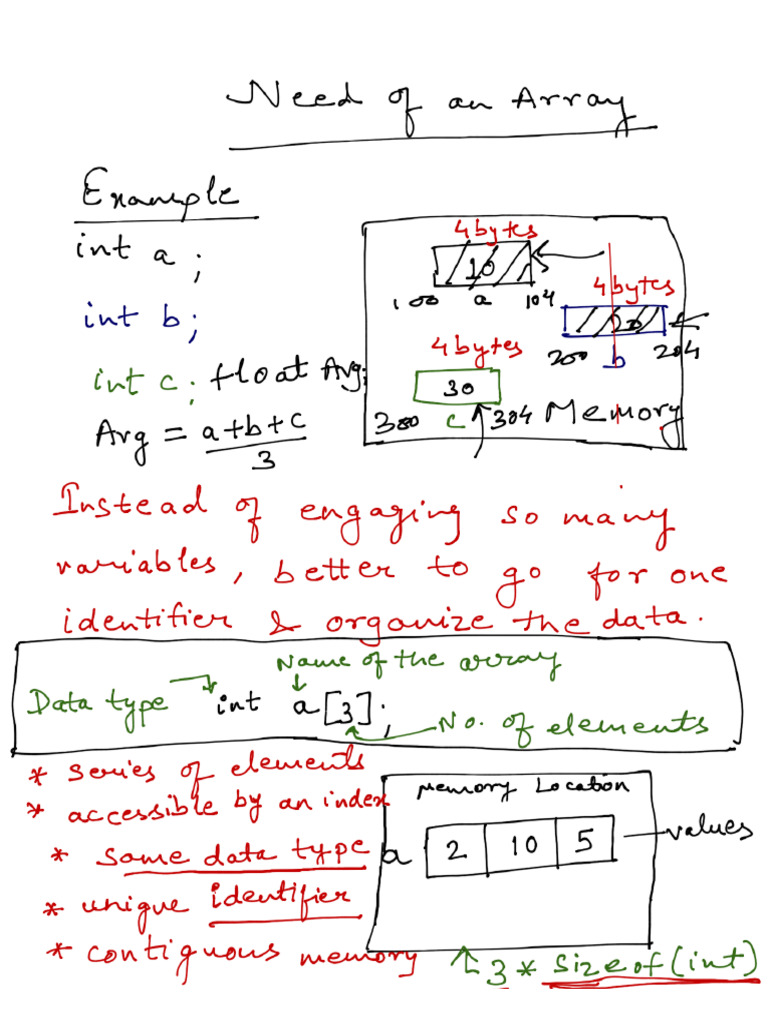 Need of an Array
Example
int a ;
int b;
int c; float Avg;
Avg = a+b+c
3
4 bytes
10
100 a 104
4 bytes
20
200 b 204
4 bytes
30
300 c 304 Memory
Instead of engaging so many
variables, better to go for one
identifier & organize the data.
Name of the array
Data type int a[3];
No. of elements
* series of elements
* accessible by an index
* Same data type
* unique identifier
* contiguous memory
Memory Location
a 2 10 5 values
3 * Size of (int)